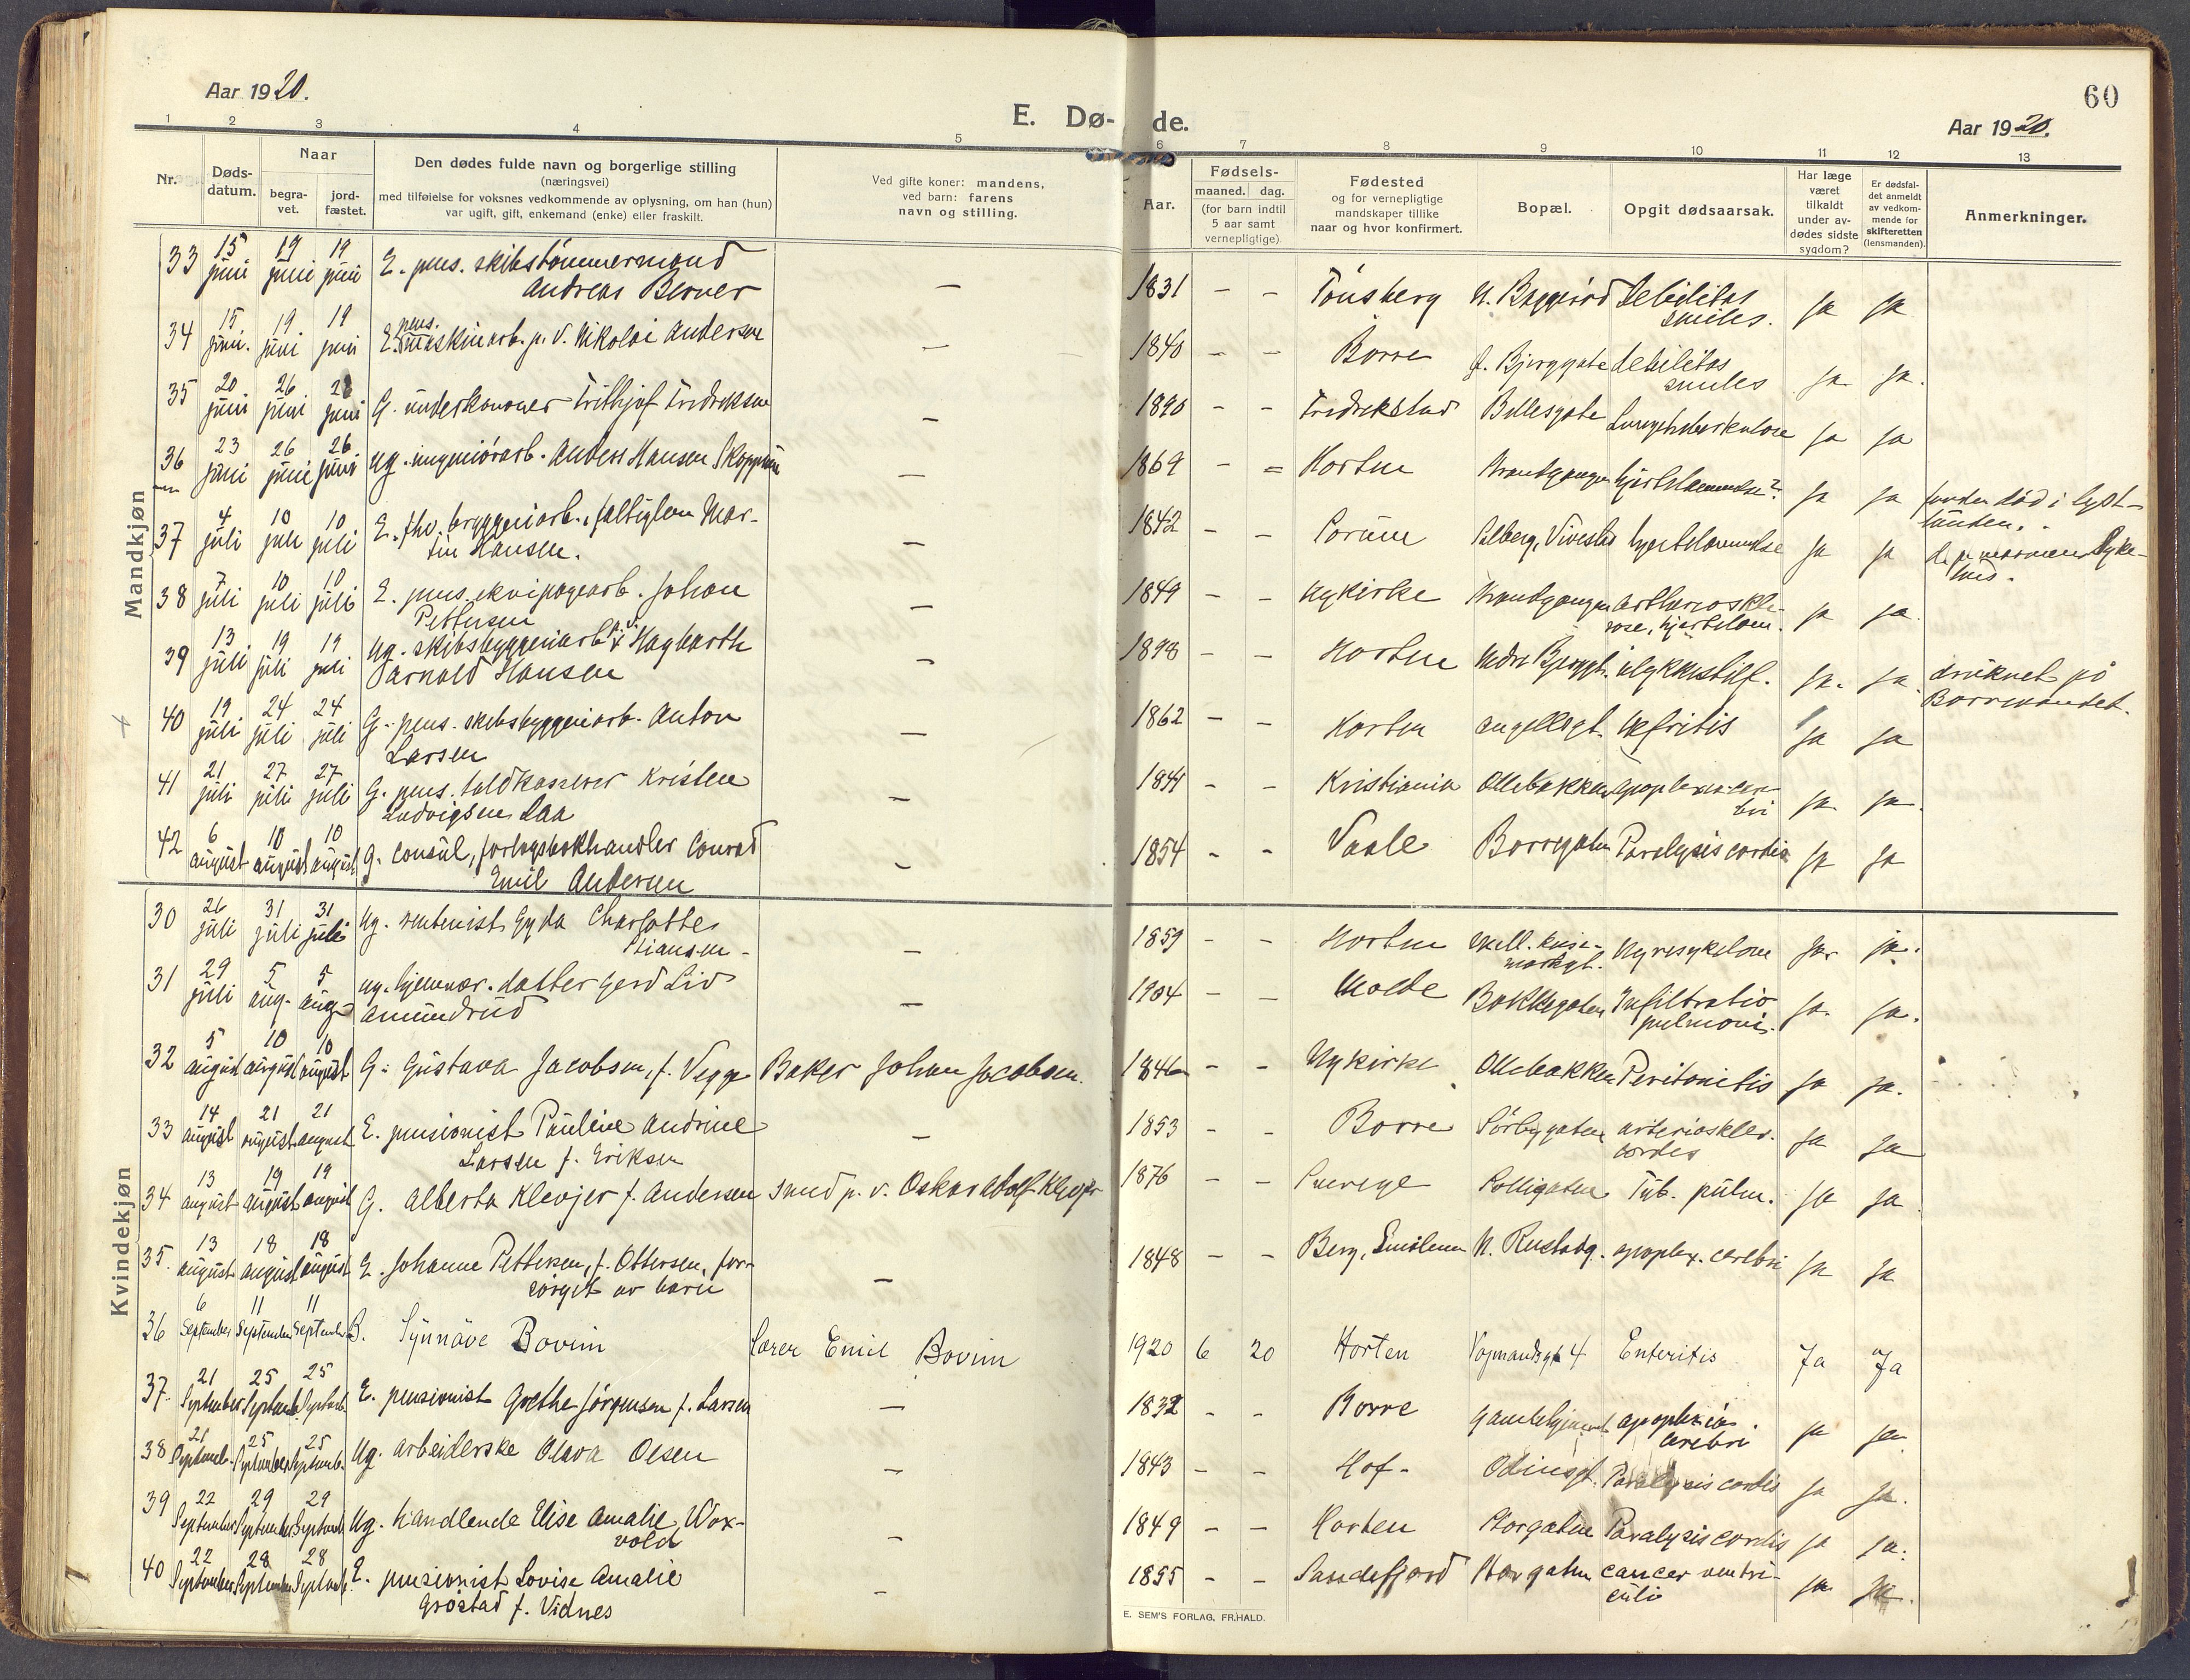 Aar 1920.
E. Dø-
de.
60
Aar 1920.
1 2 3 4 5 6 7 8 9 10 11 12 13
Nr.
Døds-
datum.
Naar
begra-
vet.
jord-
fæstet.
Den dødes fulde navn og borgerlige stilling
(næringsvei)
med tilføielse for voksnes vedkommende av oplysning, om han (hun)
var ugift, gift, enkemand (enke) eller fraskilt.
Ved gifte koner: mandens,
ved barn: farens
navn og stilling.
Aar.
Fødsels-
maaned. dag.
(for barn indtil
5 aar samt
vernepligtige)
Fødested
og for vernepligtige
mandskaper tillike
naar og hvor konfirmert.
Bopæl.
Opgit dødsaarsak.
Har læge
været
tilkaldt
under av-
dødes sidste
sygdom?
Er dødsfal-
det anmeldt
av vedkom-
mende for
skifteretten
(lensmanden).
Anmerkninger.
Mandkjøn
33 15 juni 19 juni 19 juni E. pens. skibstømmermand
Andreas Berner — 1831 - - Tønsberg N. Baggerød Debilitas
seniles. ja ja
34 15 juni. 19. juni 19 juni E. pens. maskinarb. p. v. Nikolai Andersen — 1840 - - Borre Bjerggate debilitas
seniles ja ja.
35 20 juni 26 juni juni G. underkanoner Frithjof Fredriksen — 1890 - - Fredrikstad Billesgate Lungetuberkulose ja ja
36 23 juni 26 juni 26 juni ug. ingeniørarb. Anders Hansen — 1869 - - Horten Strandgangen hjertelammelse? ja ja funden død i lyst-
lunden.
37 4 juli 10 juli 10 juli E. fhv. bryggeriarb., faltiglem Mar-
tin Hansen. — 1842 - - Sørum Solberg, hjertelammelse ja ja
38 7 juli 10 juli 10 juli E. pens. ekvipagearb. Johan
Pettersen — 1849 - - Nykirke Strandgangen artherioskle-
rose, hjertelam. ja ja
39 13 juli 19 juli 19 juli ug. skibsbyggeriarb. p. v. Hagbarth
Arnold Hansen — 1898 - - Horten Nedre Bjerggt. ulykkestilf. ja. ja. druknet på
Borrevandet.
40 19 juli 24 juli 24 juli G. pens. skibsbyggeriarb. Anton
Larsen — 1862 - - Horten Nefritis ja ja
41 21 juli 27 juli 27 juli G. pens. toldkasserer Kristen
Ludvigsen Laa — 1844 - - Kristiania Ollebakken apoplexia cere-
bri ja ja.
42 6 august 10 august 10 august G. consul, forlagsbokhandler Conrad
Emil Andersen — 1854 - - Vaale Borregaten Paralysis cordis ja ja
Kvindekjøn
30 26 juli 31 juli 31 juli ug. rentenist Gyda Charlotte
Stiansen — 1859 - - Horten Nyresykdom ja ja.
31 29 juli 5 aug. 5 aug ug. hjemmev. datter Gerd Liv
Amundrud — 1904 - - Molde Bakkegaten Infiltratio
pulmonis. ja. ja.
32 5 august 10 august 10 august G. Gustava Jacobsen, f. Vegge Baker Johan Jacobsen. 1846 - - Nykirke Ollebakken Peritonitis ja ja.
33 14 august 21 august 21 august E. pensionist Pauline Andrine
Larsen f. Eriksen — 1853 - - Borre Sørbygaten arteriosklер.
cordis ja ja
34 13 august 19 august 19 august G. Alberta Klevjer f. Andersen smed p. v. Oskar Adolf Klevjer 1876 - - Sverige Solligaten Tub. pulm. ja ja.
35. 13 august 18 august 18 august E. Johanne Pettersen, f. Ottersen, for-
sørget av barn — 1848 - - Berg, Smålenene N. Rustadg. apoplex. cerebri ja ja
36 6 September 11 September 11 September B. Synnøve Bovim Lærer Emil Bovim 1920 6 20 Horten Vognmandsgt. 4 Enteritis Ja Ja
37. 21 September 25 Septemb. 25 Septemb. E. pensionist Grethe Jørgensen f. Larsen — 1832 - - Borre Gamlehjemmet apoplexia
cerebri ja ja
38 21 Septemb. 25 September 25 Septemb. Ug. arbeiderske Olava Olsen — 1843 - - Hof. Odinsgt. Paralysis cordis ja ja.
39 22 September 29 September 29 Septemb. Ug. handlende Elise Amalie Wox-
vold — 1849 - - Horten Storgaten Paralysis cordis ja ja.
40 22 September 28 September 28 Septemb. E. pensionist Lovise Amalie
Grøstad f. Vidnes — 1855 - - Sandefjord Storgaten cancer ventri-
culi ja ja.
E. SEM'S FORLAG, FR.HALD.